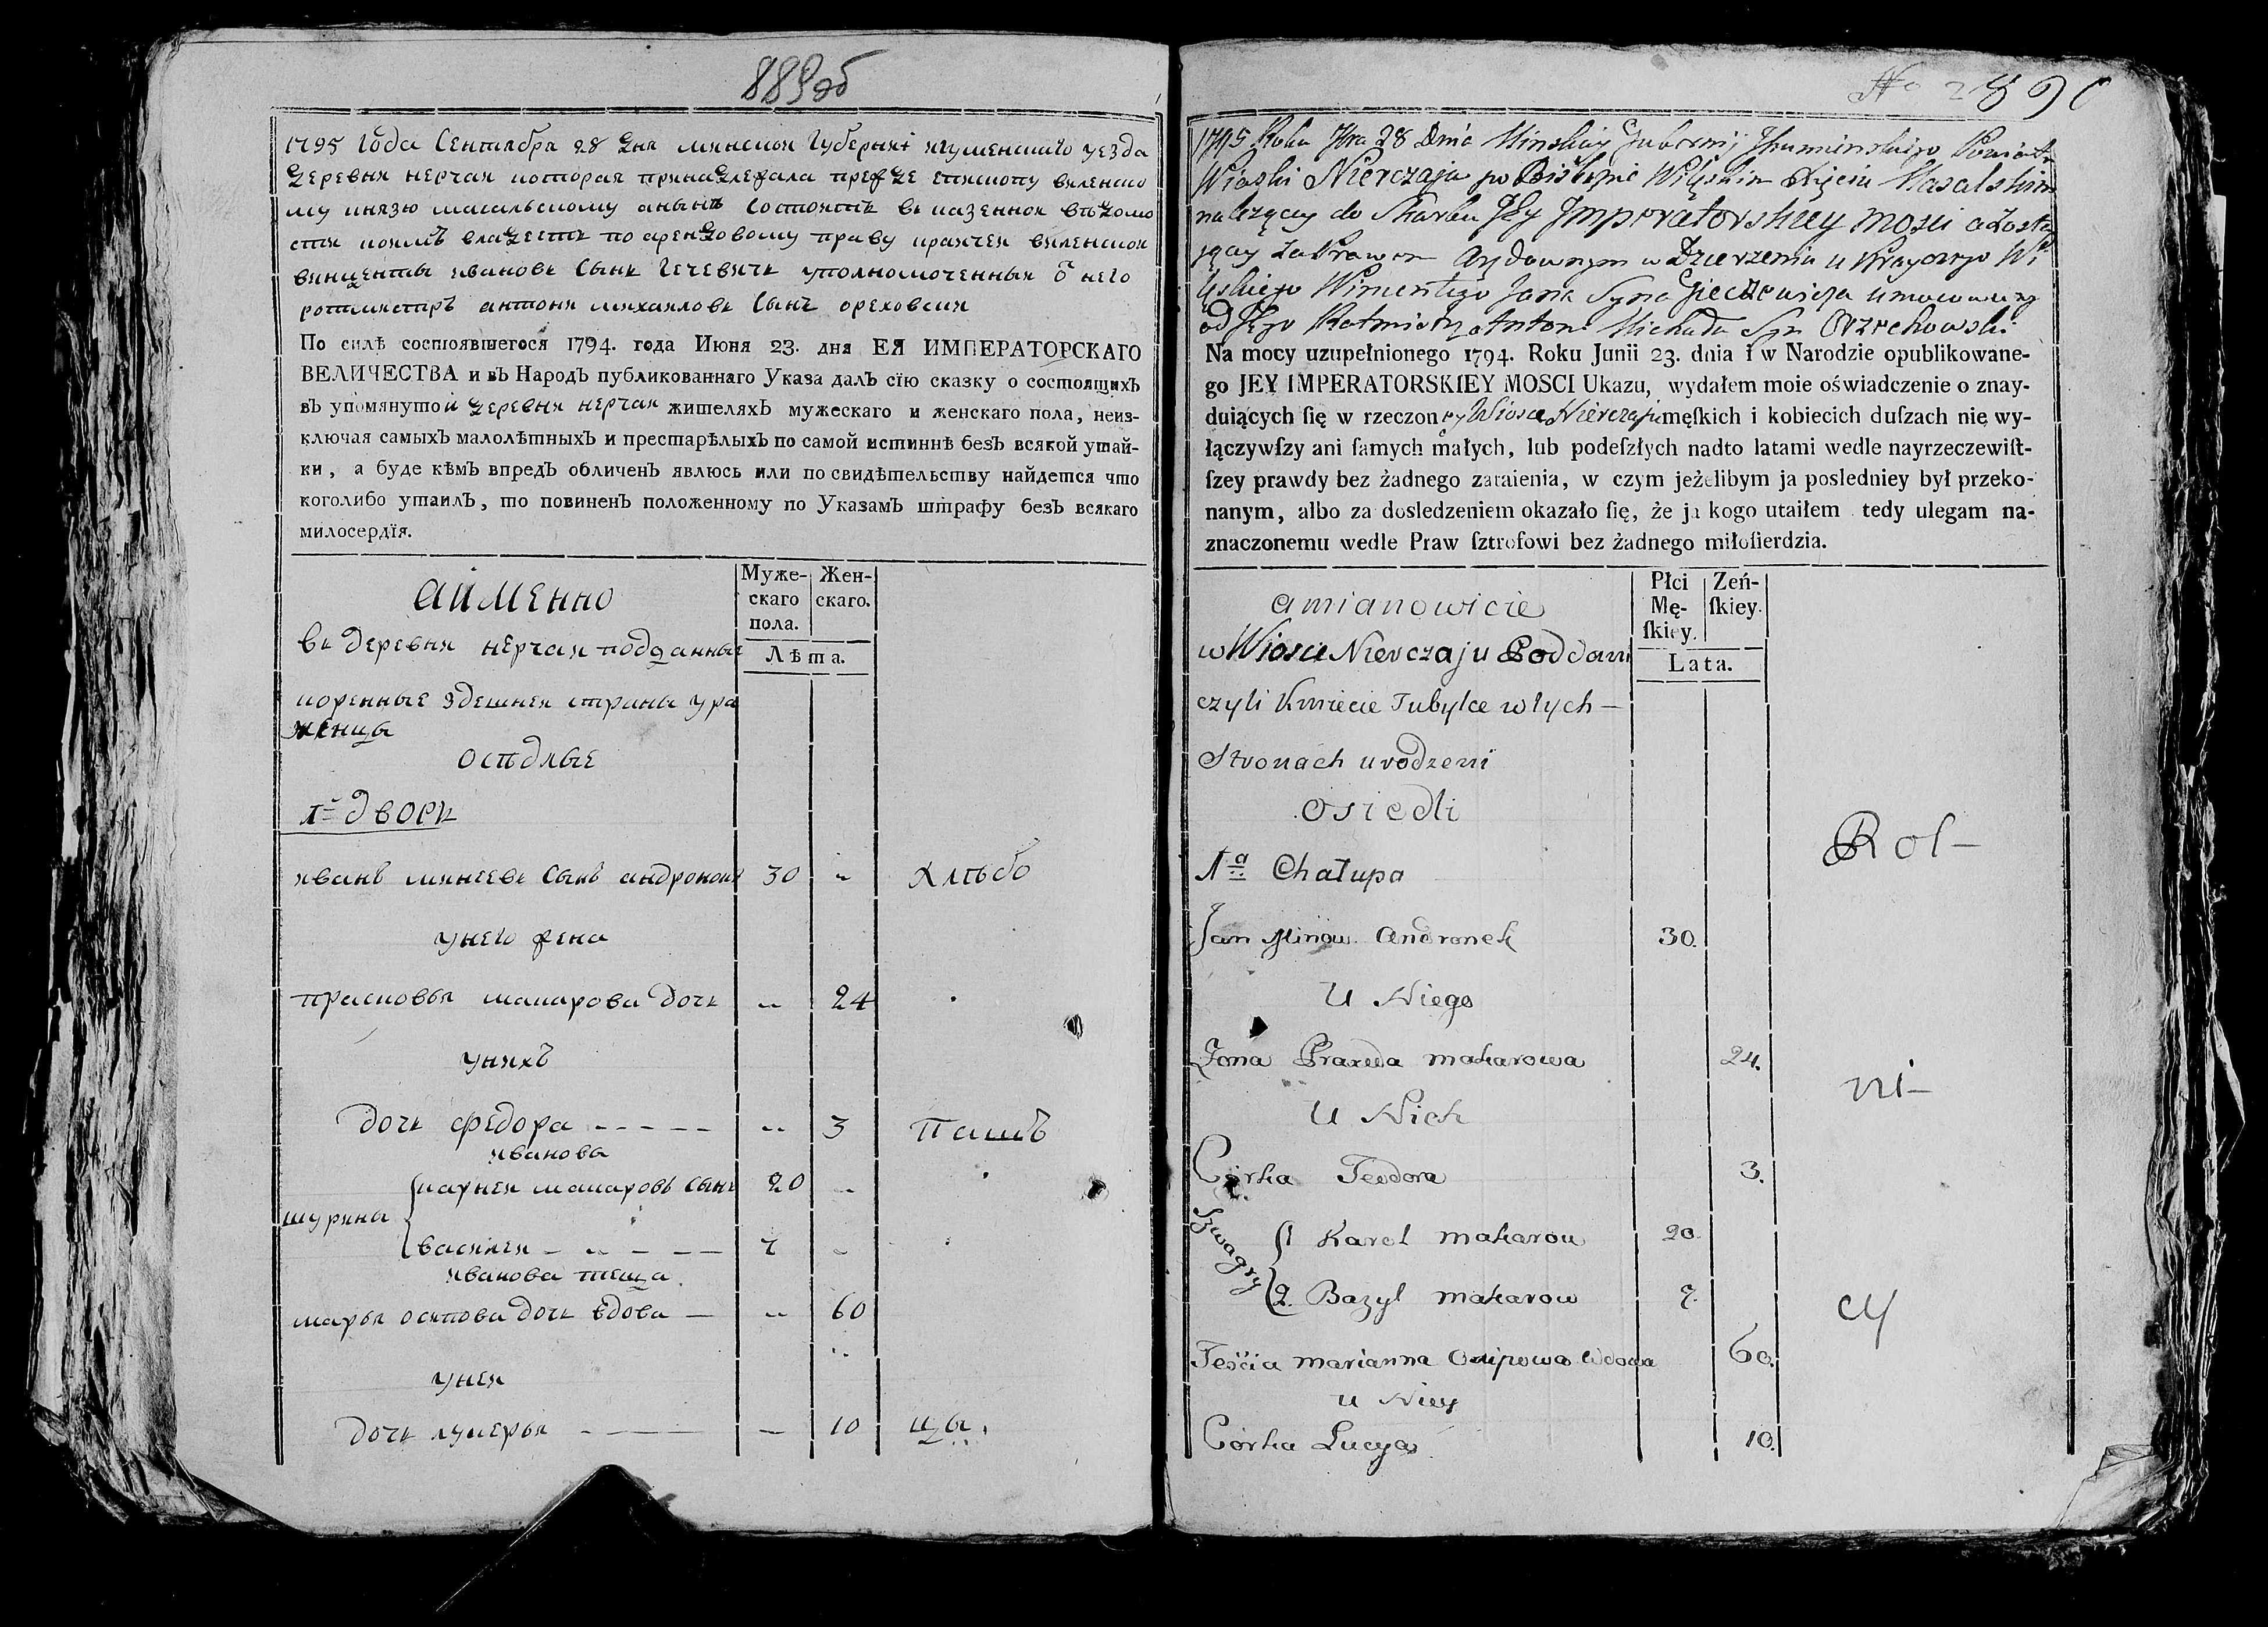 889об
1795 года Сентября 28 дня минской Губернии игуменского уезда
деревня нерчаи которая принадлежала прежде епископу виленско
му князю масальскому аныне состоитъ въ казенной вѣдомо
сти коимъ владеетъ по арендовому праву крайчей виленской
винценты ивановъ сынъ Гечевичъ уполномоченный отъ него
ротмистръ антони михаиловъ сынъ ореховски
По силѣ состоявшегося 1794. года Июня 23. дня ЕЯ ИМПЕРАТОРСКАГО
ВЕЛИЧЕСТВА и въ Народъ публикованнаго Указа далъ сїю сказку о состоящихъ
въ упомянутой деревня нерчаи жителяхъ мужескаго и женскаго пола, неиз-
ключая самыхъ малолѣтныхъ и престарѣлыхъ по самой истиннѣ безъ всякой утай-
ки, а буде кѣмъ впредъ обличенъ явлюсь или по свидѣтельству найдется что
коголибо утаилъ, то повиненъ положенному по Указамъ штрафу безъ всякаго
милосердїя.
аименно
Муже-
скаго
пола.
Жен-
скаго.
Лѣта.
въ деревни нерчаи подданные
коренные здешней страны ура
женцы
осѣдлые
1й дворъ
иванъ минеевъ сынъ андронокъ 30 „ Хлѣбо
унего жена
прасковья макарова дочь „ 24
унихъ
дочь федора ----- „ 3 Пашъ
иванова
шурина { карней макаровъ сынъ 20 „
василей - „ - - - 7 „
иванова теща
марья осипова дочь вдова — „ 60
уней
дочь лукерья - - - — 10 цы.
No 2 890
1795 Roku 7bra 28 Dnia Minskiey Gubernij Ihumińskiego Powiatu
Wioski Nierczaja po Biskupie Wileńskim Xięciu Masalskim
należącey do Skarbu Jey Imperatorskiey Mosci a zosta
jącey za Prawem Arędownym w Dzierżeniu u Krayczego Wi
leńskiego Wincentego Jana Syna Gieczewicza umocowany
od Jego Rotmistrz Antoni Michała Syn Orzechowski
Na mocy uzupełnionego 1794. Roku Junii 23. dnia i w Narodzie opublikowane-
go JEY IMPERATORSKIEY MOSCI Ukazu, wydałem moie oświadczenie o znay-
duiących ſię w rzeczoney Wiosce Nierczaju męſkich i kobiecich duſzach nie wy-
łączywſzy ani ſamych małych, lub podeſzłych nadto latami wedle nayrzeczewiſt-
ſzey prawdy bez żadnego zataienia, w czym jeżelibym ja posledniey był przeko-
nanym, albo za dosledzeniem okazało ſię, że ja kogo utaiłem tedy ulegam na-
znaczonemu wedle Praw ſztrofowi bez żadnego miłoſierdzia.
amianowicie
Płci
Mę-
ſkiey.
Zeń-
ſkiey.
Lata.
w Wiosce Nierczaju Poddani
czyli Kmiecie Tubylce w tych —
Stronach urodzeni
Osiedli
1a Chałupa
Rol-
Jan Minow. Andronek 30.
U Niego
Żona Praxeda makarowa 24.
ni-
U Nich
Corka Teodora 3.
Szwagry { 1 Karol makarow 20.
2. Bazyl makarow 7.
cy
Teścia marianna Osipowa Wdowa 60.
u Niey
Corka Lucya 10.